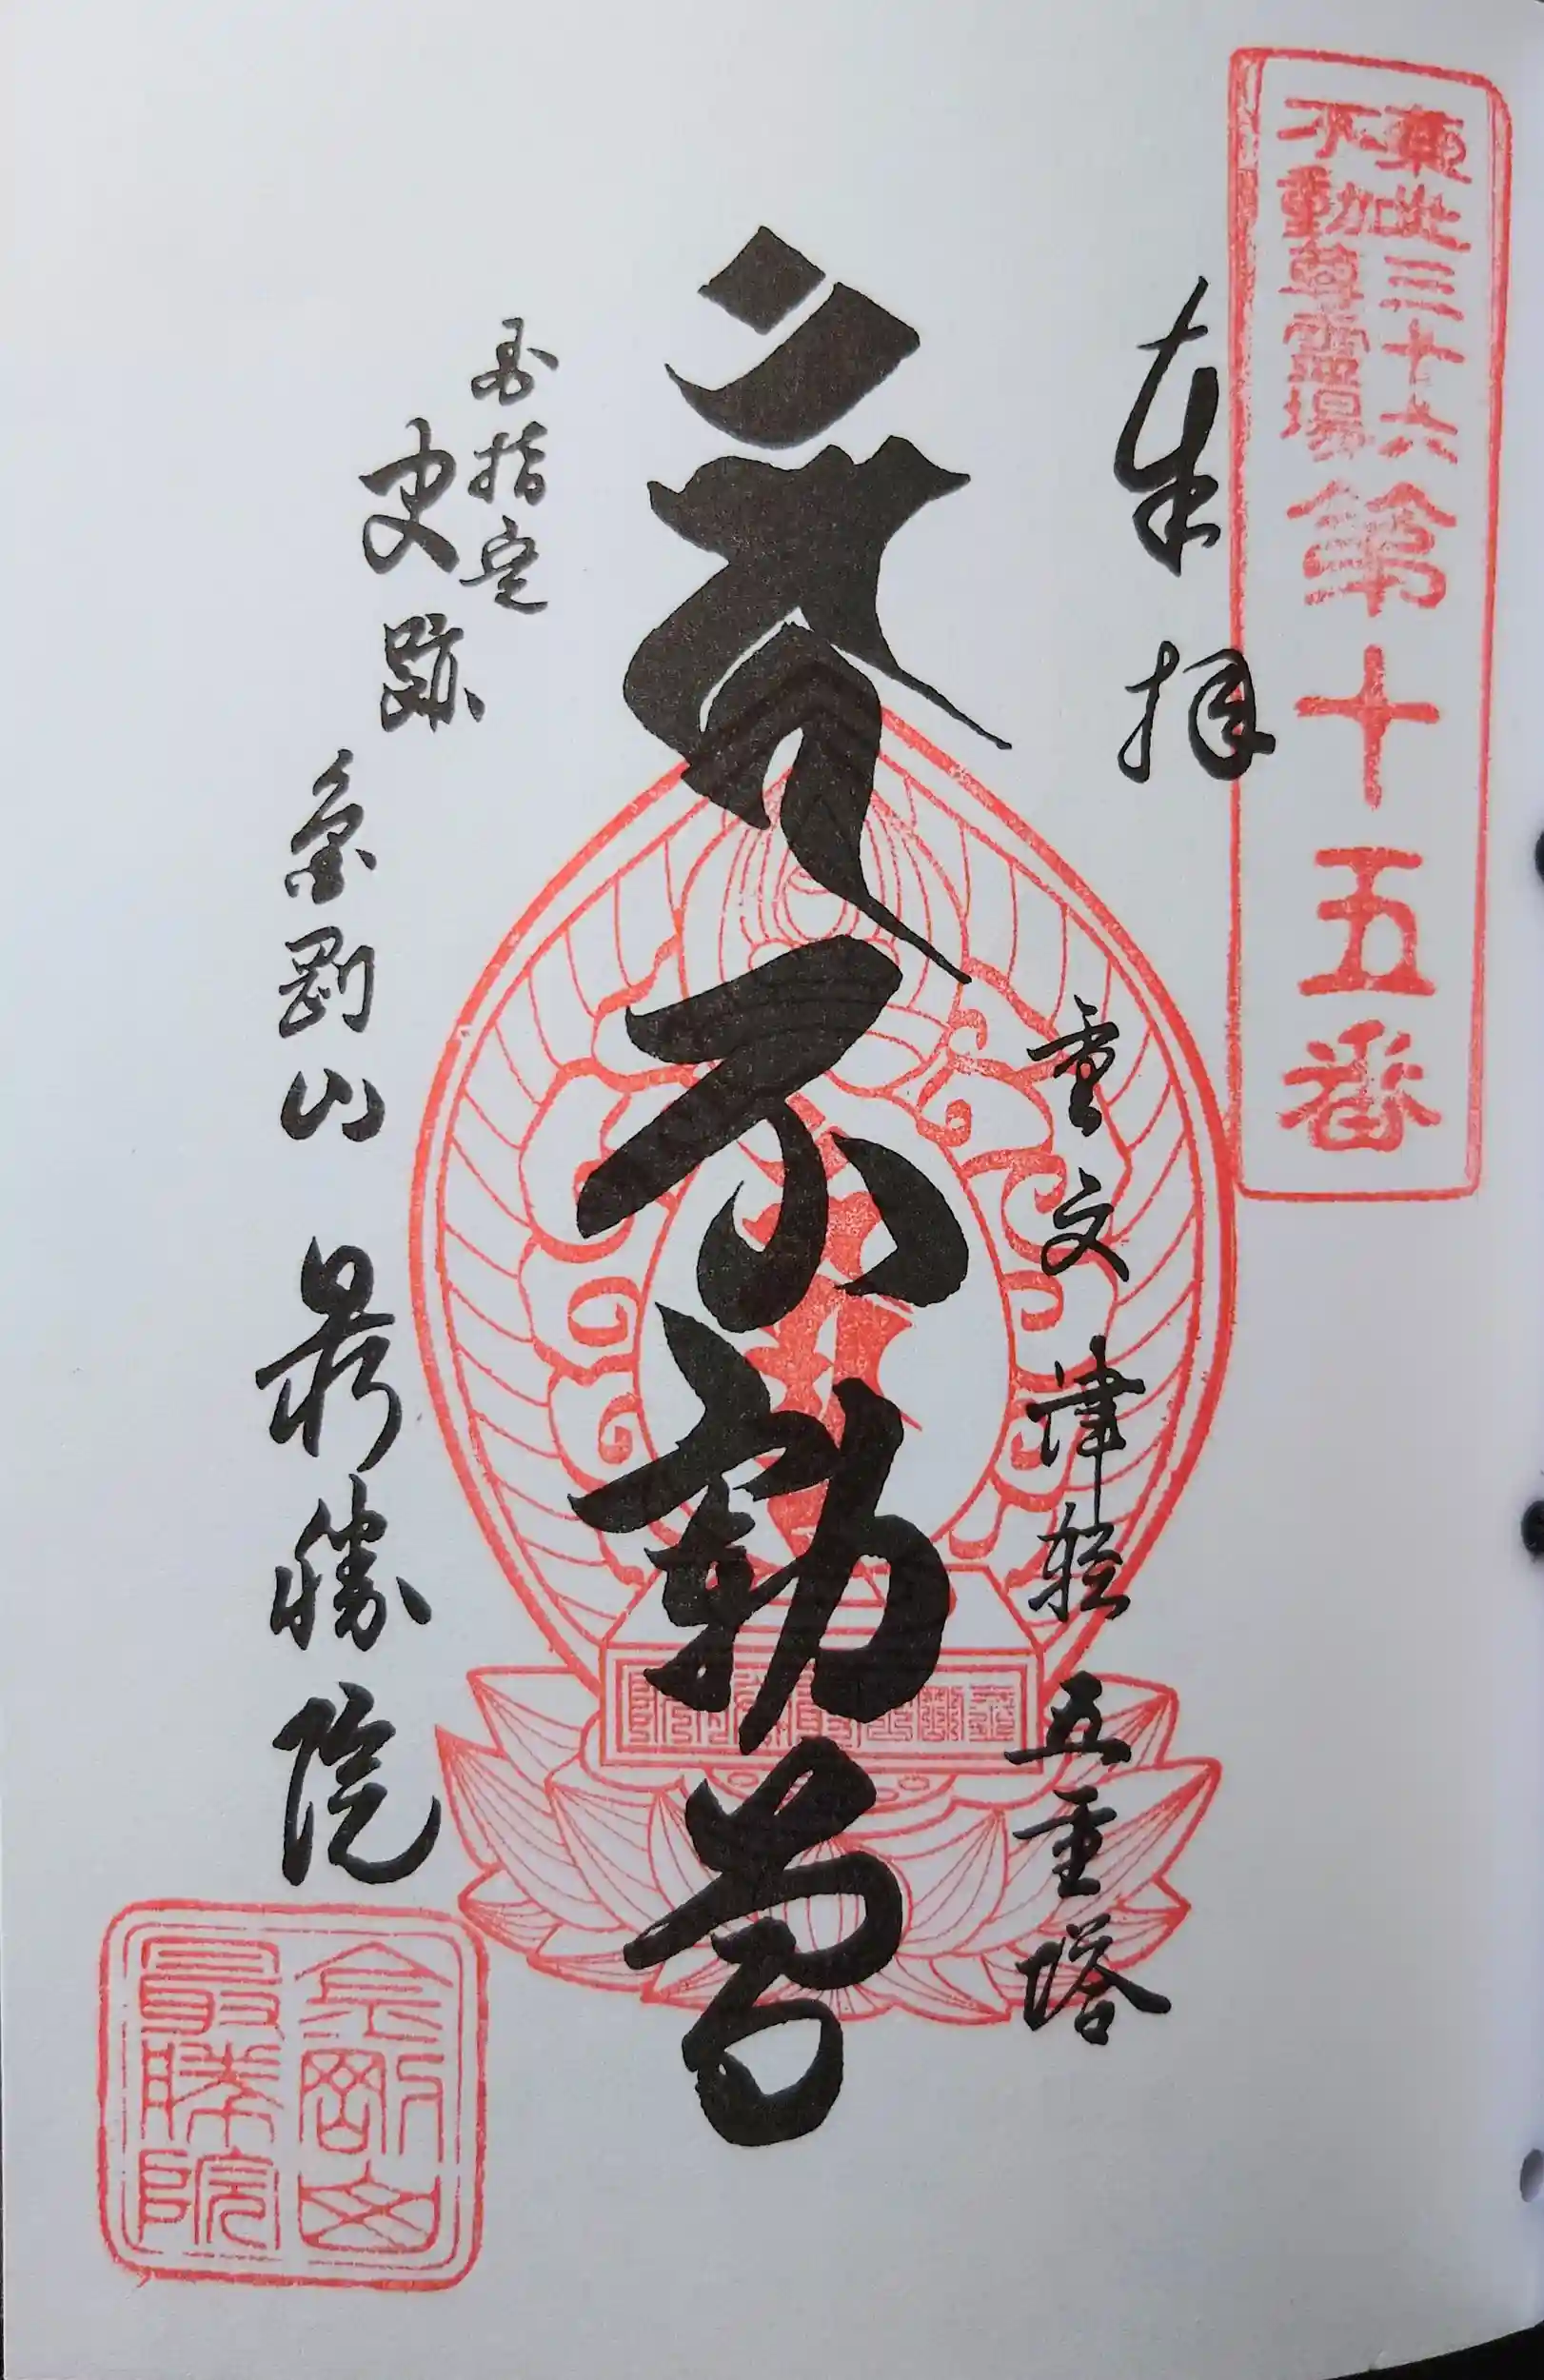 東北三十六
不動尊霊場
第十五番
奉拝
重文 津軽 五重塔
不動尊
指定
史跡
金剛山 最勝院
金剛山
最勝院